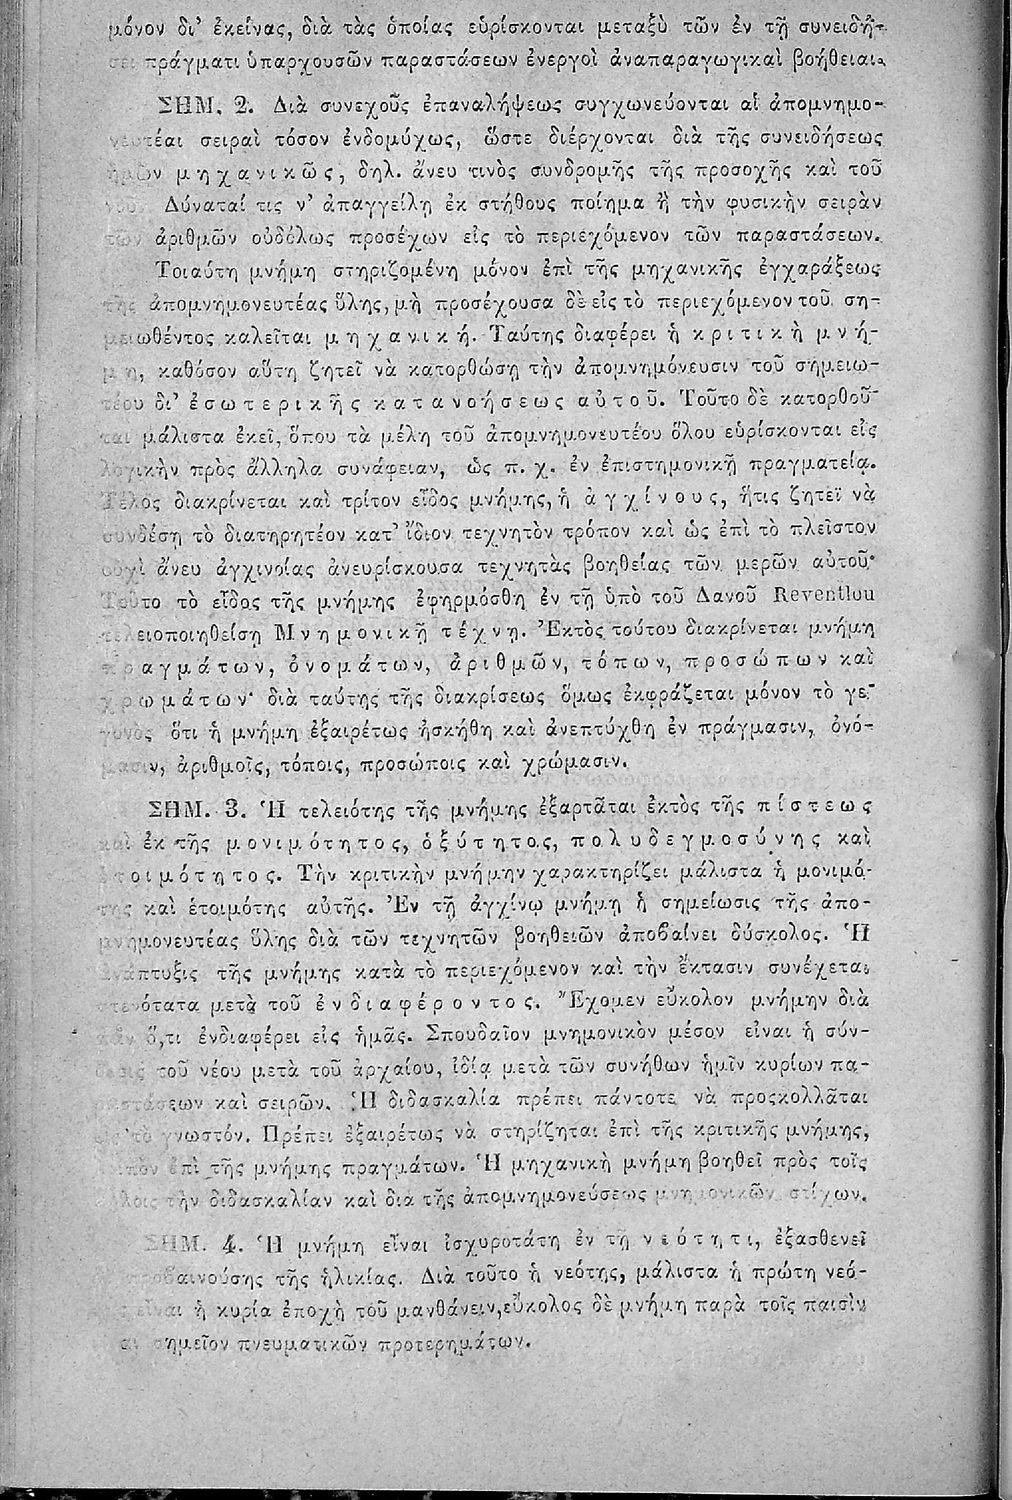 μόνον δι' ἐκείνας, διὰ τὰς ὁποίας εὑρίσκονται μεταξὺ τῶν ἐν τῇ συνειδή-
σει πράγματι ὑπαρχουσῶν παραστάσεων ἐνεργοὶ ἀναπαραγωγικαὶ βοήθειαι.
ΣΗΜ. 2. Διὰ συνεχοῦς ἐπαναλήψεως συγχωνεύονται αἱ ἀπομνημο-
νευτέαι σειραὶ τόσον ἐνδομύχως, ὥστε διέρχονται διὰ τῆς συνειδήσεως
ἡμῶν μηχανικῶς, δηλ. ἄνευ τινὸς συνδρομῆς τῆς προσοχῆς καὶ τοῦ
νοῦ. Δύναταί τις ν' ἀπαγγείλῃ ἐκ στήθους ποίημα ἢ τὴν φυσικὴν σειρὰν
τῶν ἀριθμῶν οὐδόλως προσέχων εἰς τὸ περιεχόμενον τῶν παραστάσεων.
Τοιαύτη μνήμη στηριζομένη μόνον ἐπὶ τῆς μηχανικῆς ἐγχαράξεως
τῆς ἀπομνημονευτέας ὕλης, μὴ προσέχουσα δὲ εἰς τὸ περιεχόμενον τοῦ ση-
μειωθέντος καλεῖται μηχανική. Ταύτης διαφέρει ἡ κριτικὴ μνή-
μη, καθόσον αὕτη ζητεῖ νὰ κατορθώσῃ τὴν ἀπομνημόνευσιν τοῦ σημειω-
τέου δι' ἐσωτερικῆς κατανοήσεως αὐτοῦ. Τοῦτο δὲ κατορθοῦ-
ται μάλιστα ἐκεῖ, ὅπου τὰ μέλη τοῦ ἀπομνημονευτέου ὅλου εὑρίσκονται εἰς
λογικὴν πρὸς ἄλληλα συνάφειαν, ὡς π. χ. ἐν ἐπιστημονικῇ πραγματείᾳ.
Τέλος διακρίνεται καὶ τρίτον εἶδος μνήμης, ἡ ἀγχίνους, ἥτις ζητεῖ νὰ
συνδέσῃ τὸ διατηρητέον κατ' ἴδιον τεχνητὸν τρόπον καὶ ὡς ἐπὶ τὸ πλεῖστον
οὐχὶ ἄνευ ἀγχινοίας ἀνευρίσκουσα τεχνητὰς βοηθείας τῶν μερῶν αὐτοῦ·
Τοῦτο τὸ εἶδος τῆς μνήμης ἐφηρμόσθη ἐν τῇ ὑπὸ τοῦ Δανοῦ Reventlou
τελειοποιηθείσῃ Μνημονικῇ τέχνῃ. Ἐκτὸς τούτου διακρίνεται μνήμη
πραγμάτων, ὀνομάτων, ἀριθμῶν, τόπων, προσώπων καὶ
χρωμάτων· διὰ ταύτης τῆς διακρίσεως ὅμως ἐκφράζεται μόνον τὸ γε-
γονὸς ὅτι ἡ μνήμη ἐξαιρέτως ἠσκήθη καὶ ἀνεπτύχθη ἐν πράγμασιν, ὀνό-
μασιν, ἀριθμοῖς, τόποις, προσώποις καὶ χρώμασιν.
ΣΗΜ. 3. Ἡ τελειότης τῆς μνήμης ἐξαρτᾶται ἐκτὸς τῆς πίστεως
καὶ ἐκ τῆς μονιμότητος, ὀξύτητος, πολυδεγμοσύνης καὶ
ἑτοιμότητος. Τὴν κριτικὴν μνήμην χαρακτηρίζει μάλιστα ἡ μονιμό-
της καὶ ἑτοιμότης αὐτῆς. Ἐν τῇ ἀγχίνῳ μνήμῃ ἡ σημείωσις τῆς ἀπο-
μνημονευτέας ὕλης διὰ τῶν τεχνητῶν βοηθειῶν ἀποβαίνει δύσκολος. Ἡ
ἀνάπτυξις τῆς μνήμης κατὰ τὸ περιεχόμενον καὶ τὴν ἔκτασιν συνέχεται
στενότατα μετὰ τοῦ ἐνδιαφέροντος. Ἔχομεν εὔκολον μνήμην διὰ
πᾶν ὅ,τι ἐνδιαφέρει εἰς ἡμᾶς. Σπουδαῖον μνημονικὸν μέσον εἶναι ἡ σύν-
δεσις τοῦ νέου μετὰ τοῦ ἀρχαίου, ἰδίᾳ μετὰ τῶν συνήθων ἡμῖν κυρίων πα-
ραστάσεων καὶ σειρῶν. Ἡ διδασκαλία πρέπει πάντοτε νὰ προσκολλᾶται
εἰς τὸ γνωστόν. Πρέπει ἐξαιρέτως νὰ στηρίζηται ἐπὶ τῆς κριτικῆς μνήμης,
λοιπὸν ἐπὶ τῆς μνήμης πραγμάτων. Ἡ μηχανικὴ μνήμη βοηθεῖ πρὸς τοῖς
ἄλλοις τὴν διδασκαλίαν καὶ διὰ τῆς ἀπομνημονεύσεως μνημονικῶν στίχων.
ΣΗΜ. 4. Ἡ μνήμη εἶναι ἰσχυροτάτη ἐν τῇ νεότητι, ἐξασθενεῖ
προβαινούσης τῆς ἡλικίας. Διὰ τοῦτο ἡ νεότης, μάλιστα ἡ πρώτη νεό-
της εἶναι ἡ κυρία ἐποχὴ τοῦ μανθάνειν, εὔκολος δὲ μνήμη παρὰ τοῖς παισὶν
σημεῖον πνευματικῶν προτερημάτων.